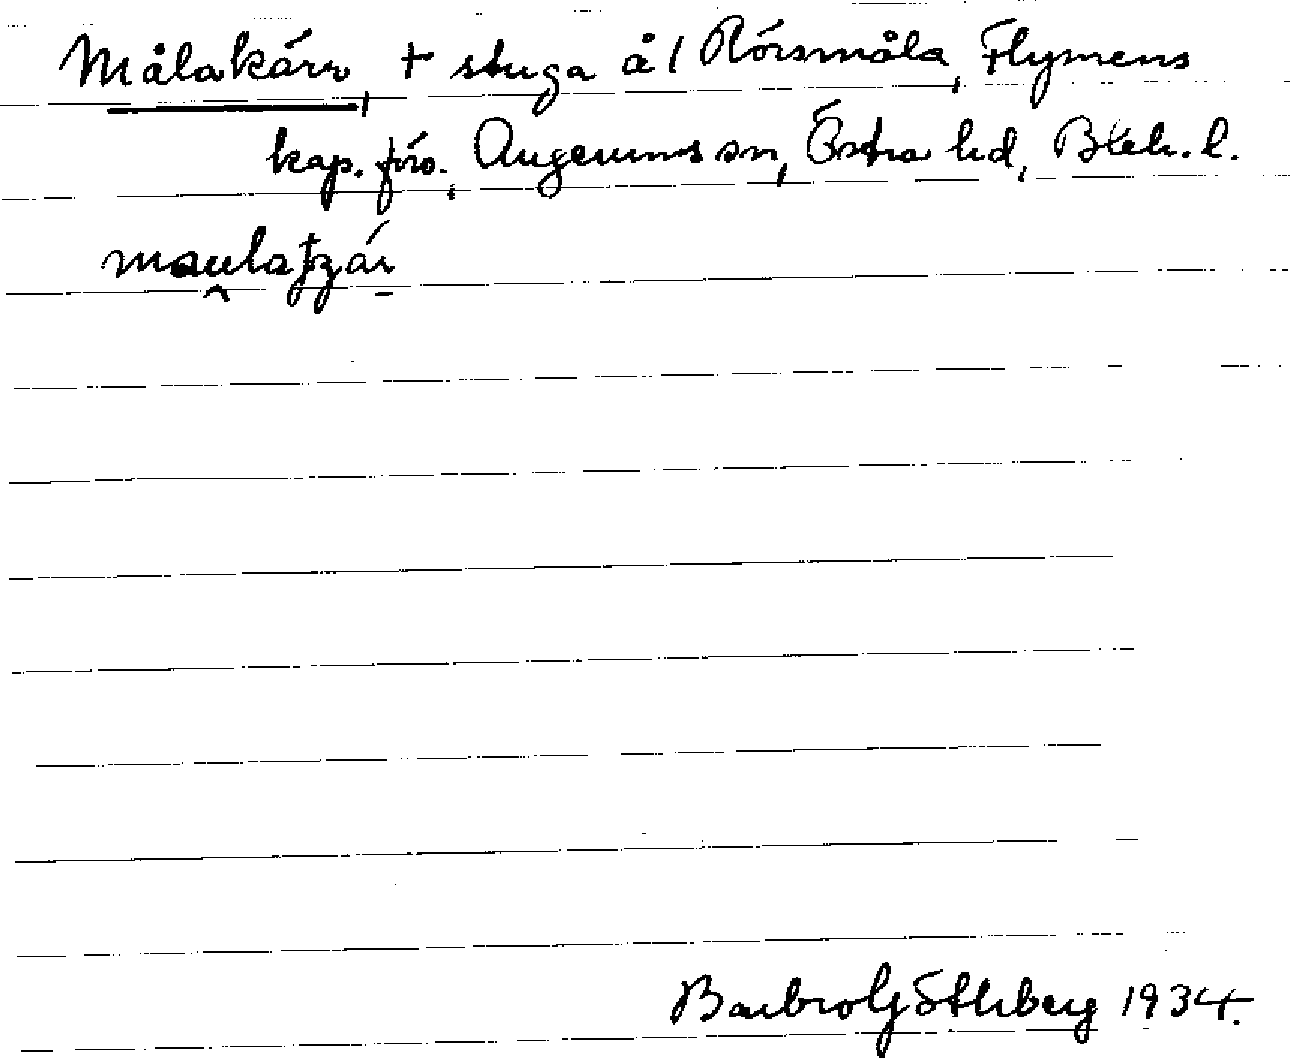 Målakärr, + stuga å / Rörsmåla, Flymens
kap. förs., Augerums sn, Östra hd, Blek. l.
Barbro Göthberg 1934.